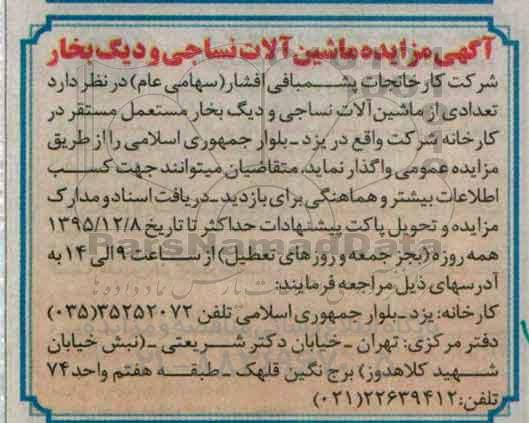 آگهی مزایده ماشین آلات نساجی و دیگ بخار
شرکت کارخانجات پشمبافی افشار (سهامی عام) در نظر دارد
تعدادی از ماشین آلات نساجی و دیگ بخار مستعمل مستقر در
کارخانه شرکت واقع در یزد ـ بلوار جمهوری اسلامی را از طریق
مزایده عمومی واگذار نماید، متقاضیان میتوانند جهت کسب
اطلاعات بیشتر و هماهنگی برای بازدید ـ دریافت اسناد و مدارک
مزایده و تحویل پاکت پیشنهادات حداکثر تا تاریخ ۱۳۹۵/۱۲/۸
همه روزه (بجز جمعه و روزهای تعطیل) از ساعت ۹ الی ۱۴ به
آدرسهای ذیل مراجعه فرمایند:
کارخانه: یزد ـ بلوار جمهوری اسلامی تلفن ۳۵۲۵۲۰۷۲ (۰۳۵)
دفتر مرکزی: تهران ـ خیابان دکتر شریعتی ـ (نبش خیابان
شهید کلاهدوز) برج نگین قلهک ـ طبقه هفتم واحد ۷۴
تلفن: ۲۲۶۳۹۴۱۲ (۰۲۱)
ParsNamadData